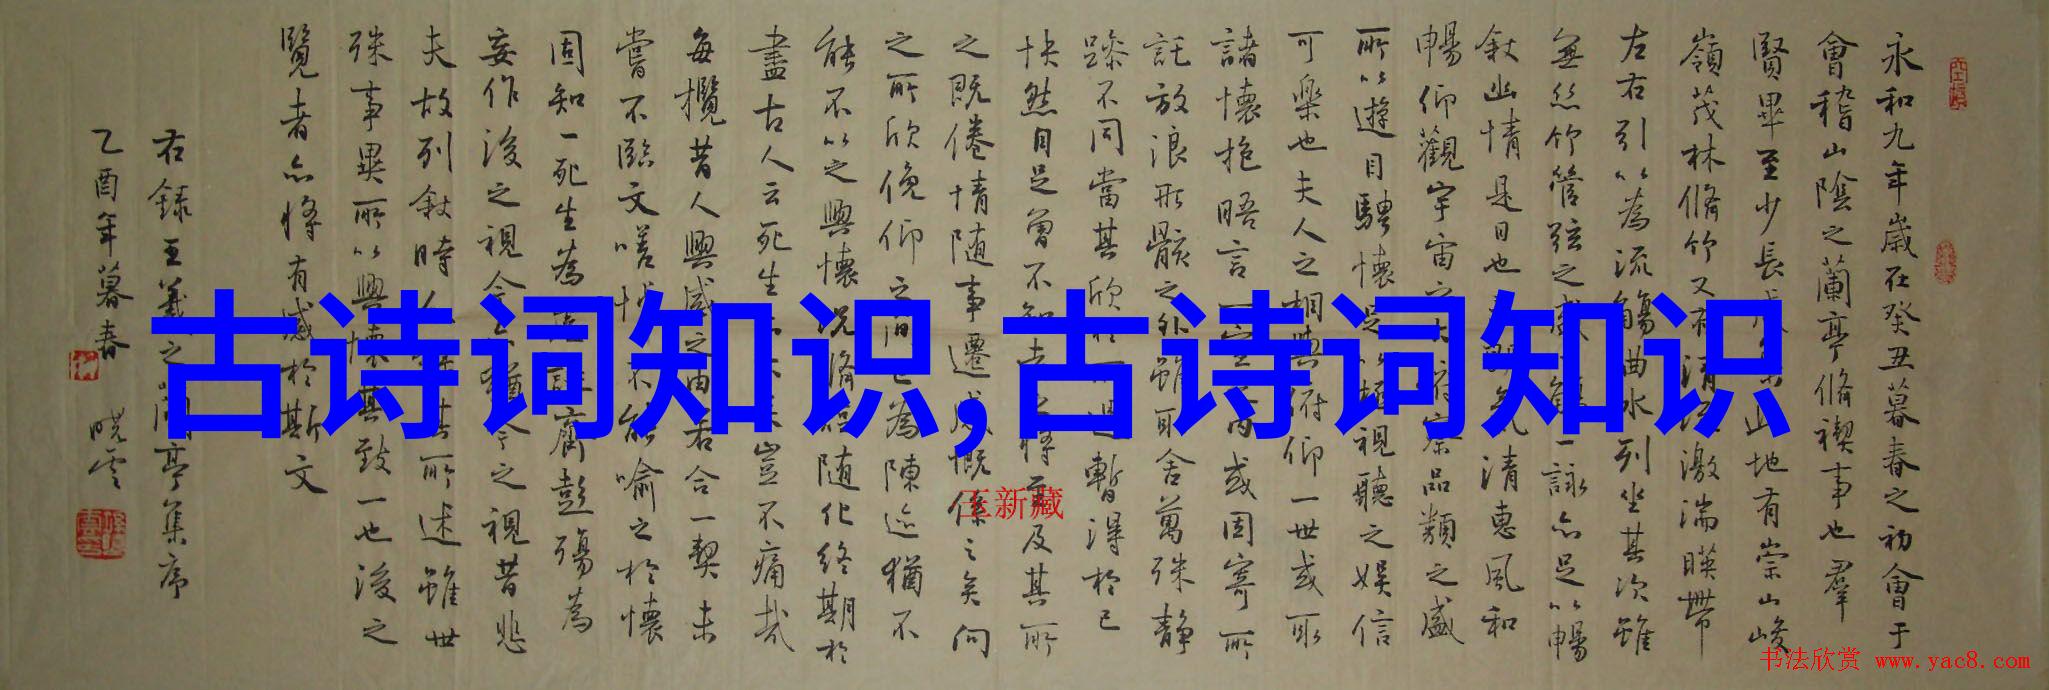 永和九年歲在癸丑暮春之初會于
會稽山陰之蘭亭脩禊事也羣
賢畢至少長地有崇山峻
嶺茂林脩竹又有清激湍暎帶
左右引以為流觴曲水列坐其次雖
無絲竹管弦之盛一詠亦足以暢
敘幽情是日也清惠風和
暢仰觀宇宙之品類之盛
所以遊目騁懷足視聽之娛信
可樂也夫人之相與俯仰一世或取
諸懷抱晤言一室內或因寄所
託放浪形骸之外雖取舍萬殊静
躁不同當其欣於遇暫得於己
快然自足曾不知老將至及其所
之既倦情随事遷感慨係之矣向
之所欣俛仰之間已為陳迹猶不
能不以之興懷況脩短随化終期於
盡古人云死生豈不痛哉
每攬昔人興感之由若合一契未
嘗不臨文嗟悼不能喻之於懷
固知一死生為齊彭殤為
妄作後之視今猶今之視昔悲
夫故列敘時人其所述雖世
殊事異所以興懷其致一也後之
覽者亦將有感於斯文
右錄王羲之蘭亭集序
乙酉年暮春 曉雲
古诗词知识,古诗词知识
王新藏
书法欣赏 www.yac8.com